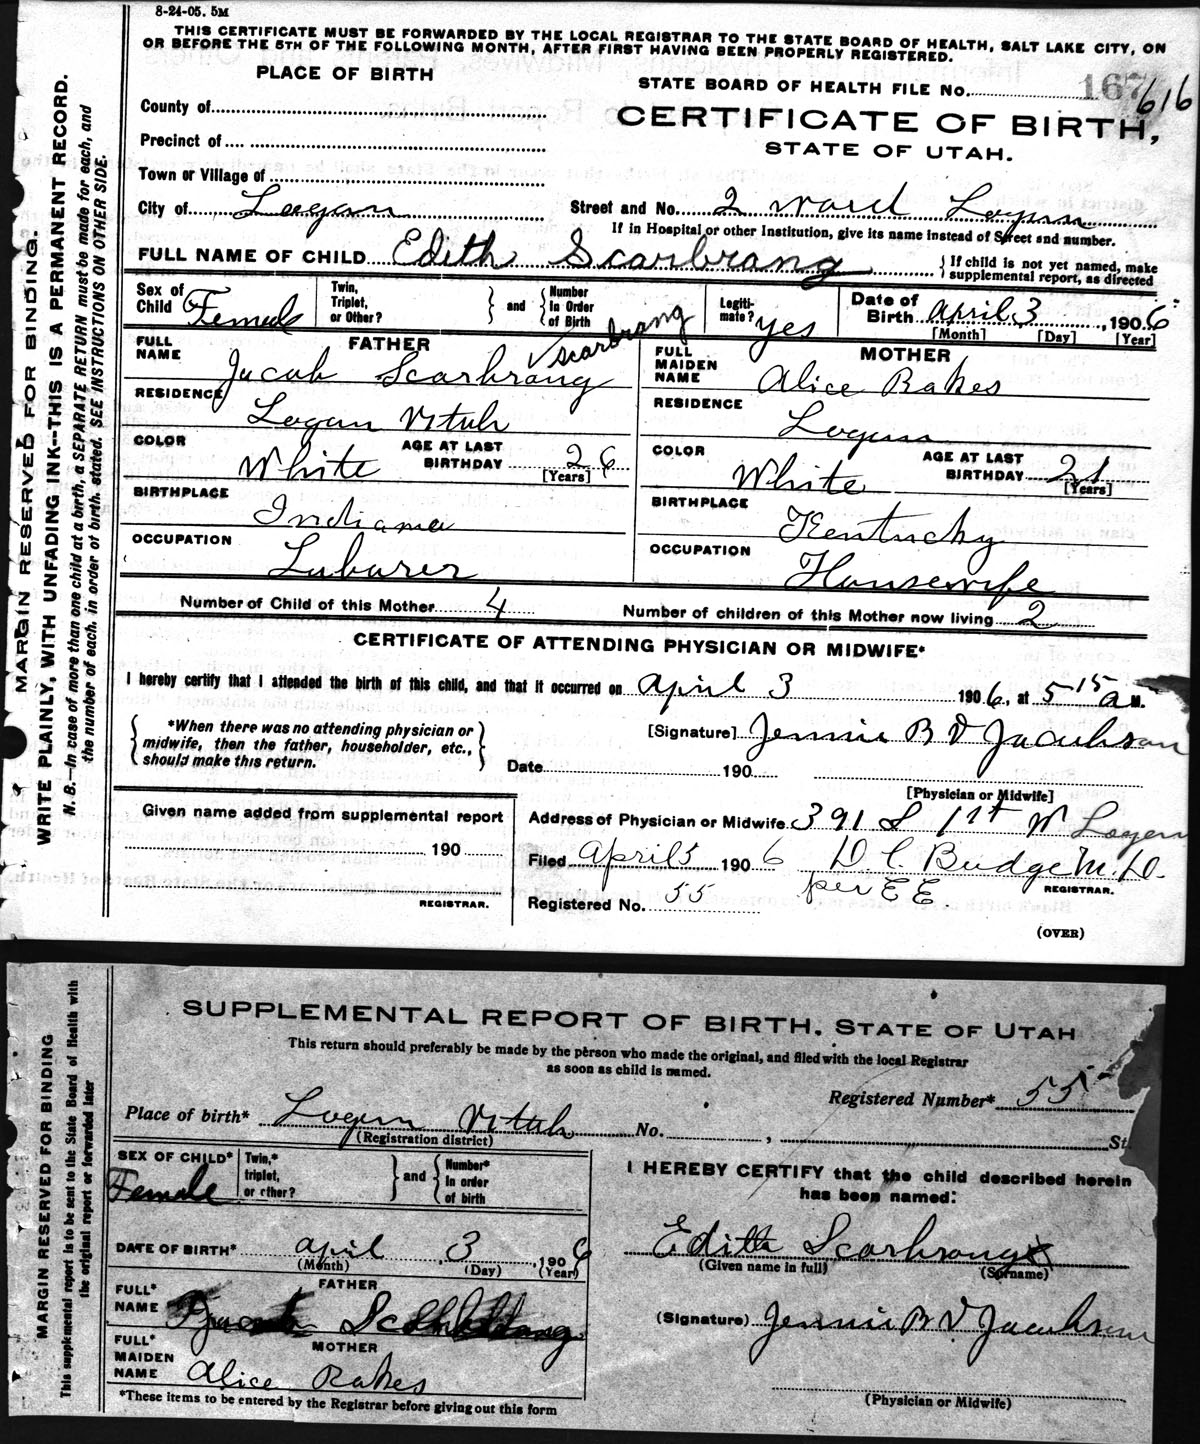 8-24-05. 5M
THIS CERTIFICATE MUST BE FORWARDED BY THE LOCAL REGISTRAR TO THE STATE BOARD OF HEALTH, SALT LAKE CITY, ON
OR BEFORE THE 5TH OF THE FOLLOWING MONTH, AFTER FIRST HAVING BEEN PROPERLY REGISTERED.
MARGIN RESERVED FOR BINDING.
WRITE PLAINLY, WITH UNFADING INK--THIS IS A PERMANENT RECORD.
N. B.--In case of more than one child at a birth, a SEPARATE RETURN must be made for each, and
the number of each, in order of birth, stated. SEE INSTRUCTIONS ON OTHER SIDE.
PLACE OF BIRTH
STATE BOARD OF HEALTH FILE No. 167 616
County of
CERTIFICATE OF BIRTH,
Precinct of
STATE OF UTAH.
Town or Village of
City of Logan Street and No. 2 ward Logan
If in Hospital or other Institution, give its name instead of Street and number.
FULL NAME OF CHILD Edith Scarbrang { If child is not yet named, make
supplemental report, as directed
Sex of Child Female Twin, Triplet, or Other? } and { Number in Order of Birth Legiti-mate? yes Date of Birth April 3, 1906
[Month] [Day] [Year]
FATHER Scarbrang MOTHER
FULL NAME Jacob Scarbrang FULL MAIDEN NAME Alice Rakes
RESIDENCE Logan Utah RESIDENCE Logan
COLOR White AGE AT LAST BIRTHDAY 26 [Years] COLOR White AGE AT LAST BIRTHDAY 21 [Years]
BIRTHPLACE Indiana BIRTHPLACE Kentucky
OCCUPATION Laburer OCCUPATION Housewife
Number of Child of this Mother 4 Number of children of this Mother now living 2
CERTIFICATE OF ATTENDING PHYSICIAN OR MIDWIFE*
I hereby certify that I attended the birth of this child, and that it occurred on April 3 1906, at 5 15 a M.
{ *When there was no attending physician or
midwife, then the father, householder, etc.,
should make this return. }
[Signature] Jennie B V Jacobson
Date 190
[Physician or Midwife]
Given name added from supplemental report
190
REGISTRAR.
Address of Physician or Midwife 391 S 1st W Logan
Filed April 5 1906 D. C. Budge M.D.
REGISTRAR.
Registered No. 55 per EE.
(OVER)
MARGIN RESERVED FOR BINDING
This supplemental report is to be sent to the State Board of Health with
the original report or forwarded later
SUPPLEMENTAL REPORT OF BIRTH. STATE OF UTAH
This return should preferably be made by the person who made the original, and filed with the local Registrar
as soon as child is named.
Registered Number* 55
Place of birth* Logan Utah No. , St
(Registration district)
SEX OF CHILD* Female Twin,* triplet, or other? } and { Number* in order of birth
I HEREBY CERTIFY that the child described herein
has been named:
DATE OF BIRTH* April 3, 1906
(Month) (Day) (Year)
Edith Scarbrang
(Given name in full) (Surname)
FATHER
FULL* NAME
MOTHER
FULL* MAIDEN NAME Alice Rakes
(Signature) Jennie B V Jacobson
(Physician or Midwife)
*These items to be entered by the Registrar before giving out this form